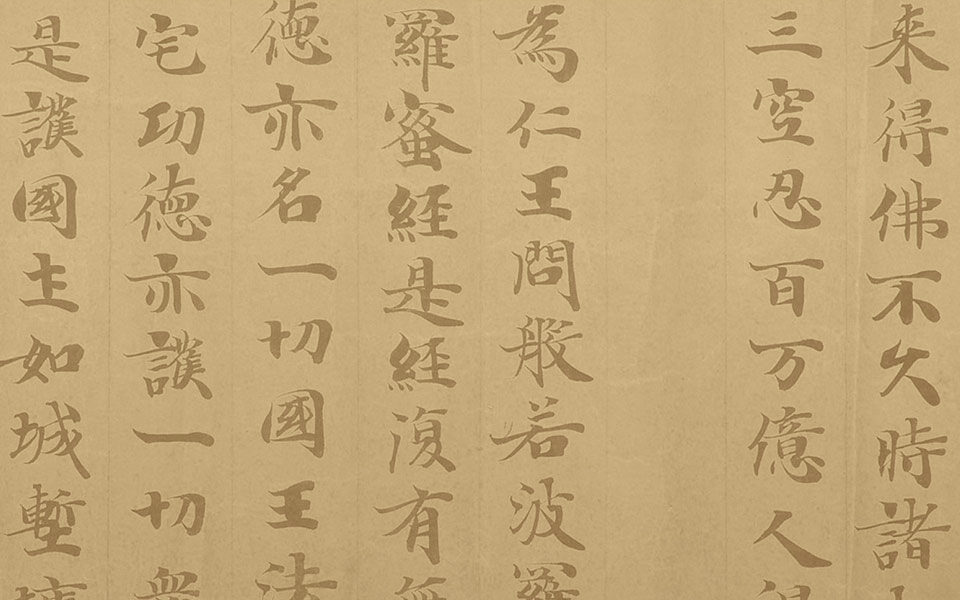 来得佛不久時諸
三空忍百万億人
為仁王問般若波羅
羅蜜經是經復有無
德亦名一切國王法
宅功德亦護一切眾
是護國土如城塹